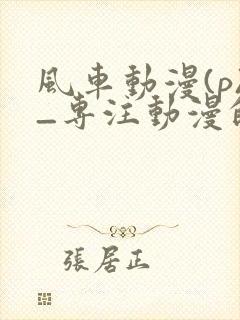 風車動漫(p
–專注動漫的
張居正